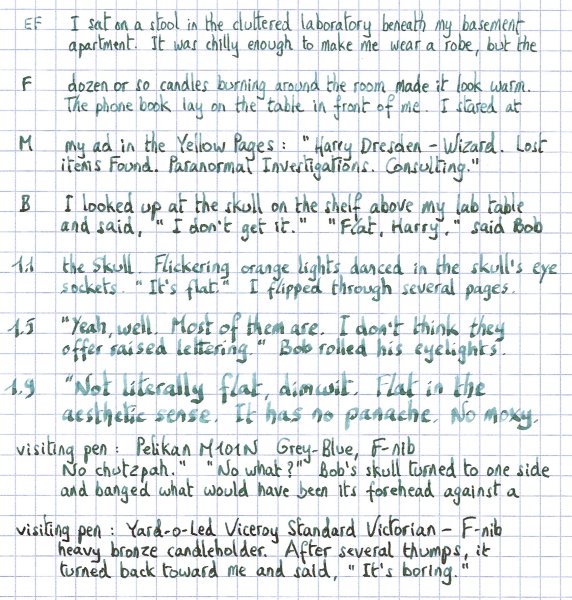 EF I sat on a stool in the cluttered laboratory beneath my basement
apartment. It was chilly enough to make me wear a robe, but the
F dozen or so candles burning around the room made it look warm.
The phone book lay on the table in front of me. I stared at
M my ad in the Yellow Pages : "Harry Dresden - Wizard. Lost
items Found. Paranormal Investigations. Consulting."
B I looked up at the skull on the shelf above my lab table
and said, "I don't get it." "Flat, Harry," said Bob
1.1 the Skull. Flickering orange lights danced in the skull's eye
sockets. "It's flat." I flipped through several pages.
1.5 "Yeah, well. Most of them are. I don't think they
offer raised lettering." Bob rolled his eyelights.
1.9 "Not literally flat, dimwit. Flat in the
aesthetic sense. It has no panache. No moxy.
visiting pen : Pelikan M101N Grey-Blue, F-nib
No chutzpah." "No what?" Bob's skull turned to one side
and banged what would have been its forehead against a
visiting pen : Yard-o-Led Viceroy Standard Victorian - F-nib
heavy bronze candleholder. After several thumps, it
turned back toward me and said, "It's boring."